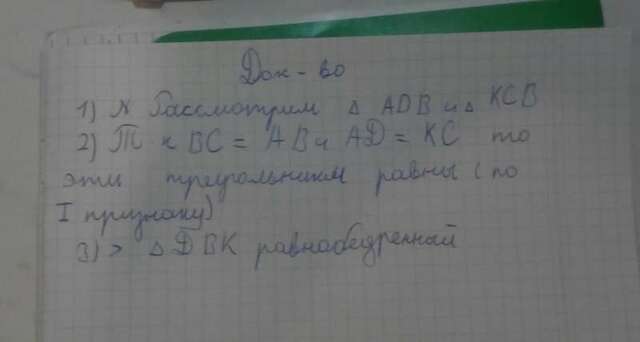 Док-во
1) Рассмотрим △ ADB и △ KCB
2) Т к BC = AB и AD = KC то
эти треугольники равны (по
I признаку)
3) > △ DBK равнобедренный